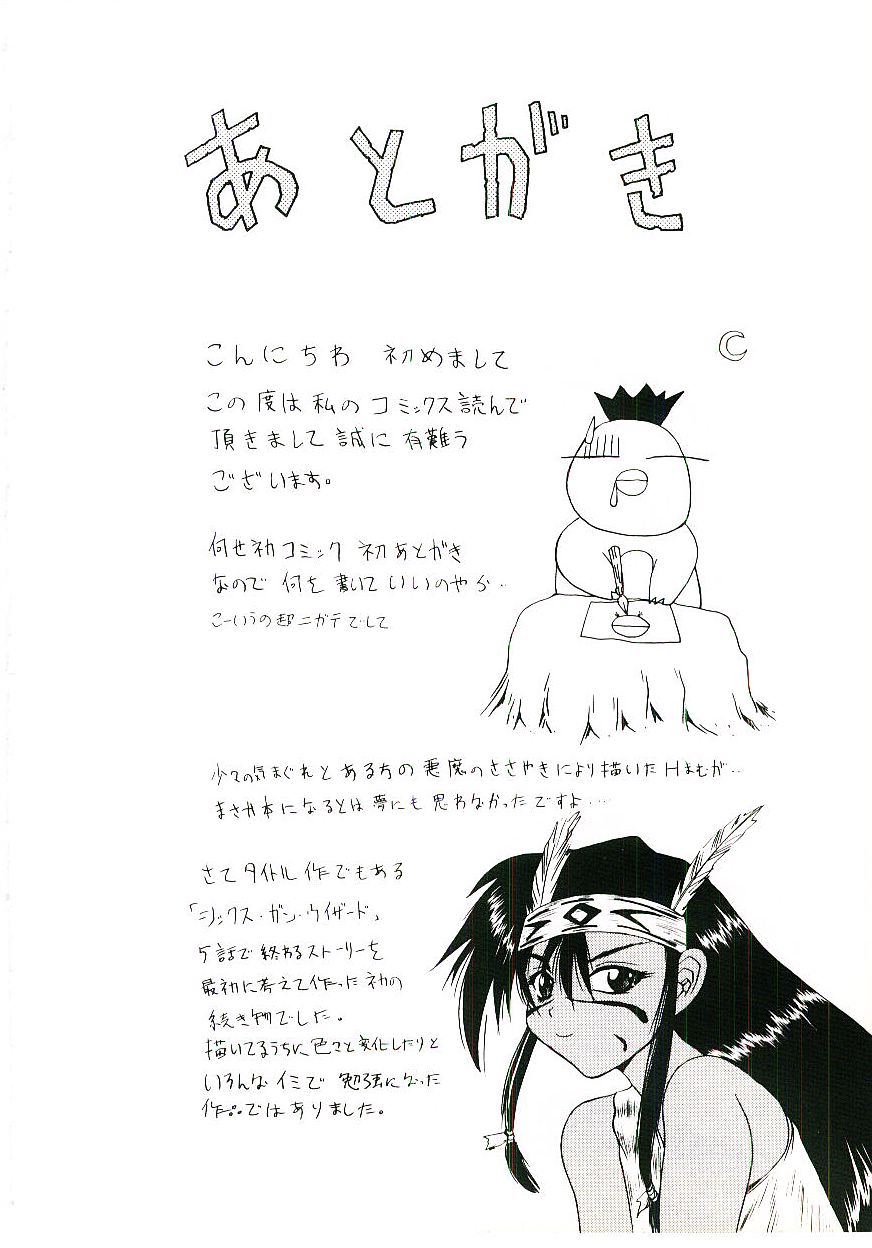 あとがき
こんにちわ 初めまして
この度は私のコミックス読んで
頂きまして誠に有難う
ございます。
何せ初コミック 初あとがき
なので何を書いていいのやら‥
こーいうの超ニガテでして
少々の気まぐれとある方の悪魔のささやきにより描いたHまもが‥
まさか本になるとは夢にも思わなかったですよ‥‥
さてタイトル作でもある
「シックス・ガン・ウィザード」
5話で終わるストーリーを
最初に考えて作った初の
続き物でした。
描いてるうちに色々と変化したりと
いろんなイミで勉強になった
作品ではありました。